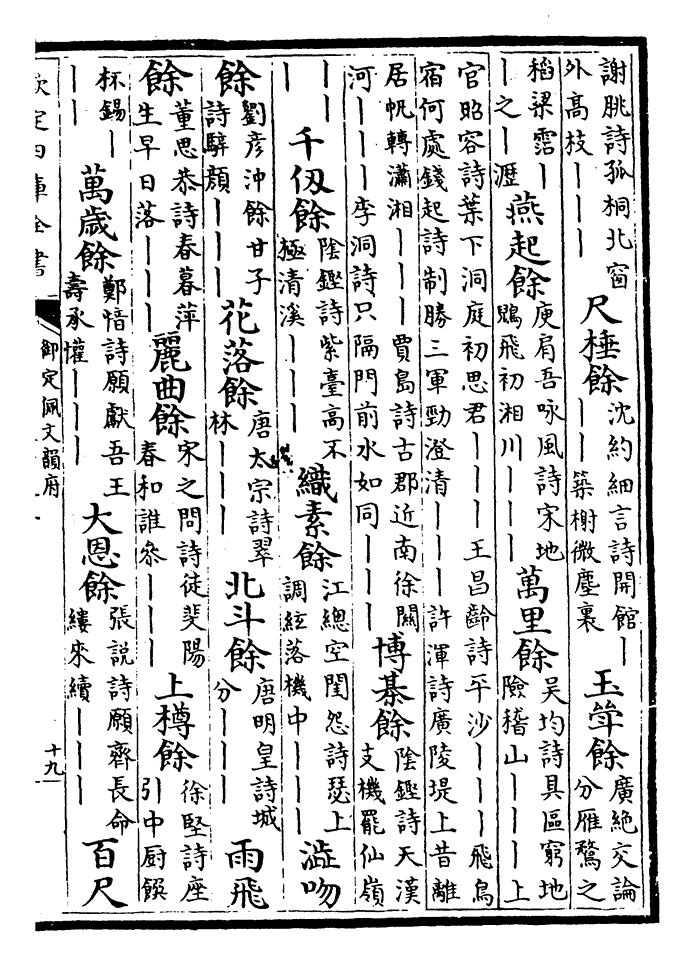 謝朓詩孤桐北窗
外高枝｜｜｜
尺棰餘
沈約細言詩開館｜
｜築榭微塵裏
玉斚餘
廣絕交論
分雁鶩之
稻梁霑｜
｜之｜瀝
燕起餘
庾肩吾咏風詩宋地
鶂飛初湘川｜｜｜
萬里餘
吳均詩具區窮地
險稽山｜｜｜上
官昭容詩葉下洞庭初思君｜｜｜王昌齡詩平沙｜｜｜飛鳥
宿何處錢起詩制勝三軍勁澄清｜｜｜許渾詩廣陵堤上昔離
居帆轉瀟湘｜｜｜賈島詩古郡近南徐關
河｜｜｜李洞詩只隔門前水如同｜｜｜
博棊餘
陰鏗詩天漢
支機罷仙嶺
｜｜
｜
千仭餘
陰鏗詩紫臺高不
極清溪｜｜｜
織素餘
江總空閨怨詩瑟上
調絃落機中｜｜｜
澁吻
餘
劉彥沖餘甘子
詩騂顏｜｜｜
花落餘
唐太宗詩翠
林｜｜｜
北斗餘
唐明皇詩城
分｜｜｜
雨飛
餘
董思恭詩春暮萍
生早日落｜｜｜
麗曲餘
宋之問詩徒斐陽
春和誰參｜｜｜
上樽餘
徐堅詩座
引中厨饌
杯錫｜
｜｜
萬歲餘
鄭愔詩願獻吾王
壽承懽｜｜｜
大恩餘
張說詩願齊長命
縷來續｜｜｜
百尺
欽定四庫全書
御定佩文韻府
十九